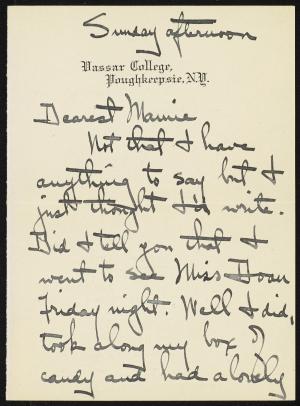 Sunday afternoon
Vassar College,
Poughkeepsie, N.Y.
Dearest Mamie
Not that I have
anything to say but I
just thought I'd write.
Did I tell you that I
went to see Miss Doan
Friday night. Well I did,
took along my box of
candy and had a lovely